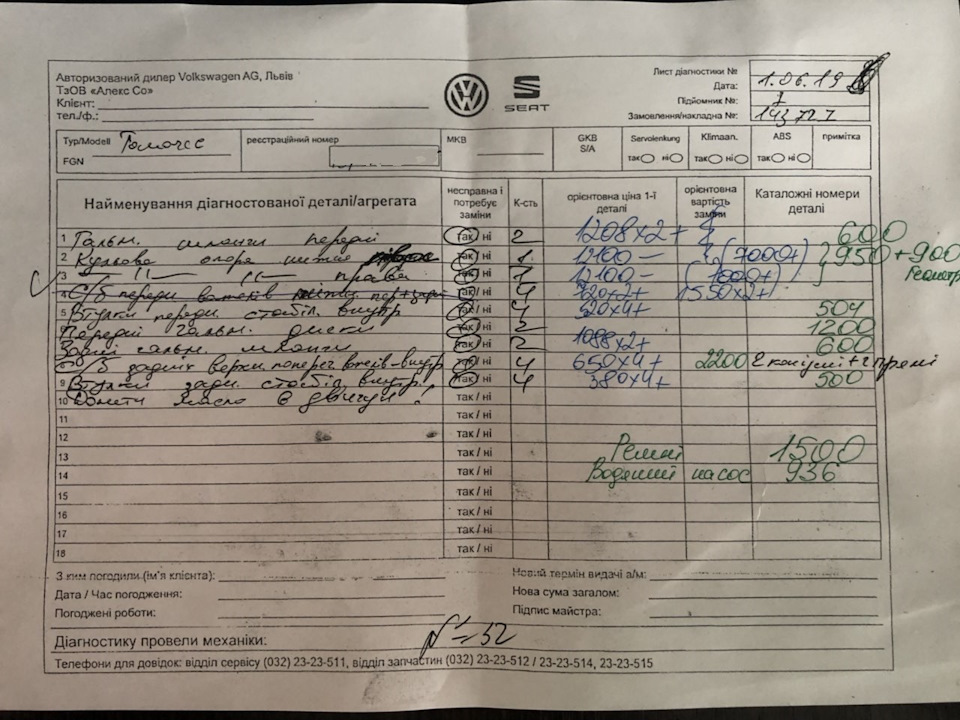 Авторизований дилер Volkswagen AG, Львів
ТзОВ «Алекс Со»
Клієнт:
тел./ф.:
SEAT
Лист діагностики №
Дата: 1.06.19
Підйомник №:
Замовлення/накладна №: 143727
Тур/Modell
FGN
реєстраційний номер
МКВ
GKB S/A
Servolenkung так ні
Klimaan. так ні
ABS так ні
примітка
Найменування діагностованої деталі/агрегата несправна і потребує заміни К-сть орієнтовна ціна 1-ї деталі орієнтовна вартість заміни Каталожні номери деталі
1 Гальм. шланги передні так / ні 2 1208x2+ 600
2 Кулкова опора нижня так / ні 1 12100 — (7000+) 950 + 900
3 —"— —"— права так / ні 1 12100 — (7000+)
4 С/б передн. важелів так / ні 4 720x2+ 1550x2+
5 Втулки передн. стабіл. внутр так / ні 4 520x4+ 504
6 Передні гальм. диски так / ні 2 1200
7 Задні гальм. шланги так / ні 2 1088x2+ 600
8 С/б задніх верхн. попереч. важелів-внутр так / ні 4 650x4+ 2200 2 конусні + 2 прямі
9 Втулки задн. стабіл. внутр! так / ні 4 380x4+ 500
10 Долити масло в двигун! так / ні
11 так / ні
12 так / ні
13 так / ні Ремні 1500
14 так / ні Водяний насос 936
15 так / ні
16 так / ні
17 так / ні
18 так / ні
З ким погодили (ім'я клієнта):
Новий термін видачі а/м:
Дата / Час погодження:
Нова сума загалом:
Погоджені роботи:
Підпис майстра:
Діагностику провели механіки:
Телефони для довідок: відділ сервісу (032) 23-23-511, відділ запчастин (032) 23-23-512 / 23-23-514, 23-23-515